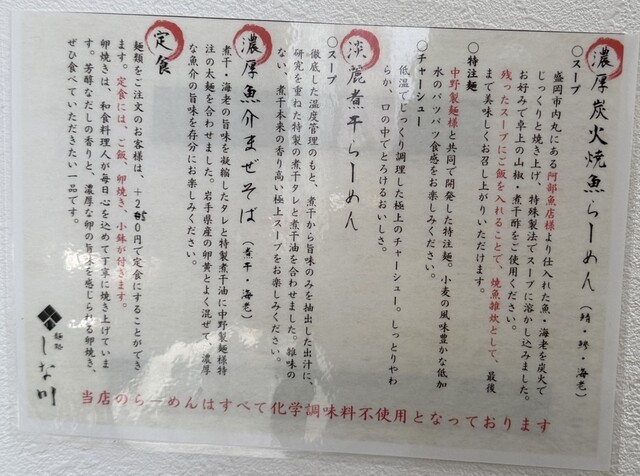 濃厚炭火焼魚らーめん（鯖・鯵・海老）
○スープ
盛岡市内丸にある阿部魚店様より仕入れた魚・海老を炭火で
じっくりと焼き上げ、特殊製法でスープに溶かし込みました。
お好みで卓上の山椒・煮干酢をご使用ください。
残ったスープにご飯を入れることで、焼魚雑炊として、最後
まで美味しくお召し上がりいただけます。
○特注麺
中野製麺様と共同で開発した特注麺。小麦の風味豊かな低加
水のパツパツ食感をお楽しみください。
○チャーシュー
低温でじっくり調理した極上のチャーシュー。しっとりやわ
らか、口の中でとろけるおいしさ。
淡麗煮干らーめん
○スープ
徹底した温度管理のもと、煮干から旨味のみを抽出した出汁に、
研究を重ねた特製の煮干タレと煮干油を合わせました。雑味の
ない、煮干本来の香り高い極上スープをお楽しみください。
濃厚魚介まぜそば（煮干・海老）
煮干・海老の旨味を凝縮したタレと特製煮干油に中野製麺様特
注の太麺を合わせました。岩手県産の卵黄とよく混ぜて、濃厚
な魚介の旨味を存分にお楽しみください。
定食
麺類をご注文のお客様は、+250円で定食にすることができ
ます。定食には、ご飯、卵焼き、小鉢が付きます。
卵焼きは、和食料理人が毎日心を込めて丁寧に焼き上げていま
す。芳醇なだしの香りと、濃厚な卵の旨味を感じられる卵焼き、
ぜひ食べていただきたい一品です。
麺処
しな川
当店のらーめんはすべて化学調味料不使用となっております